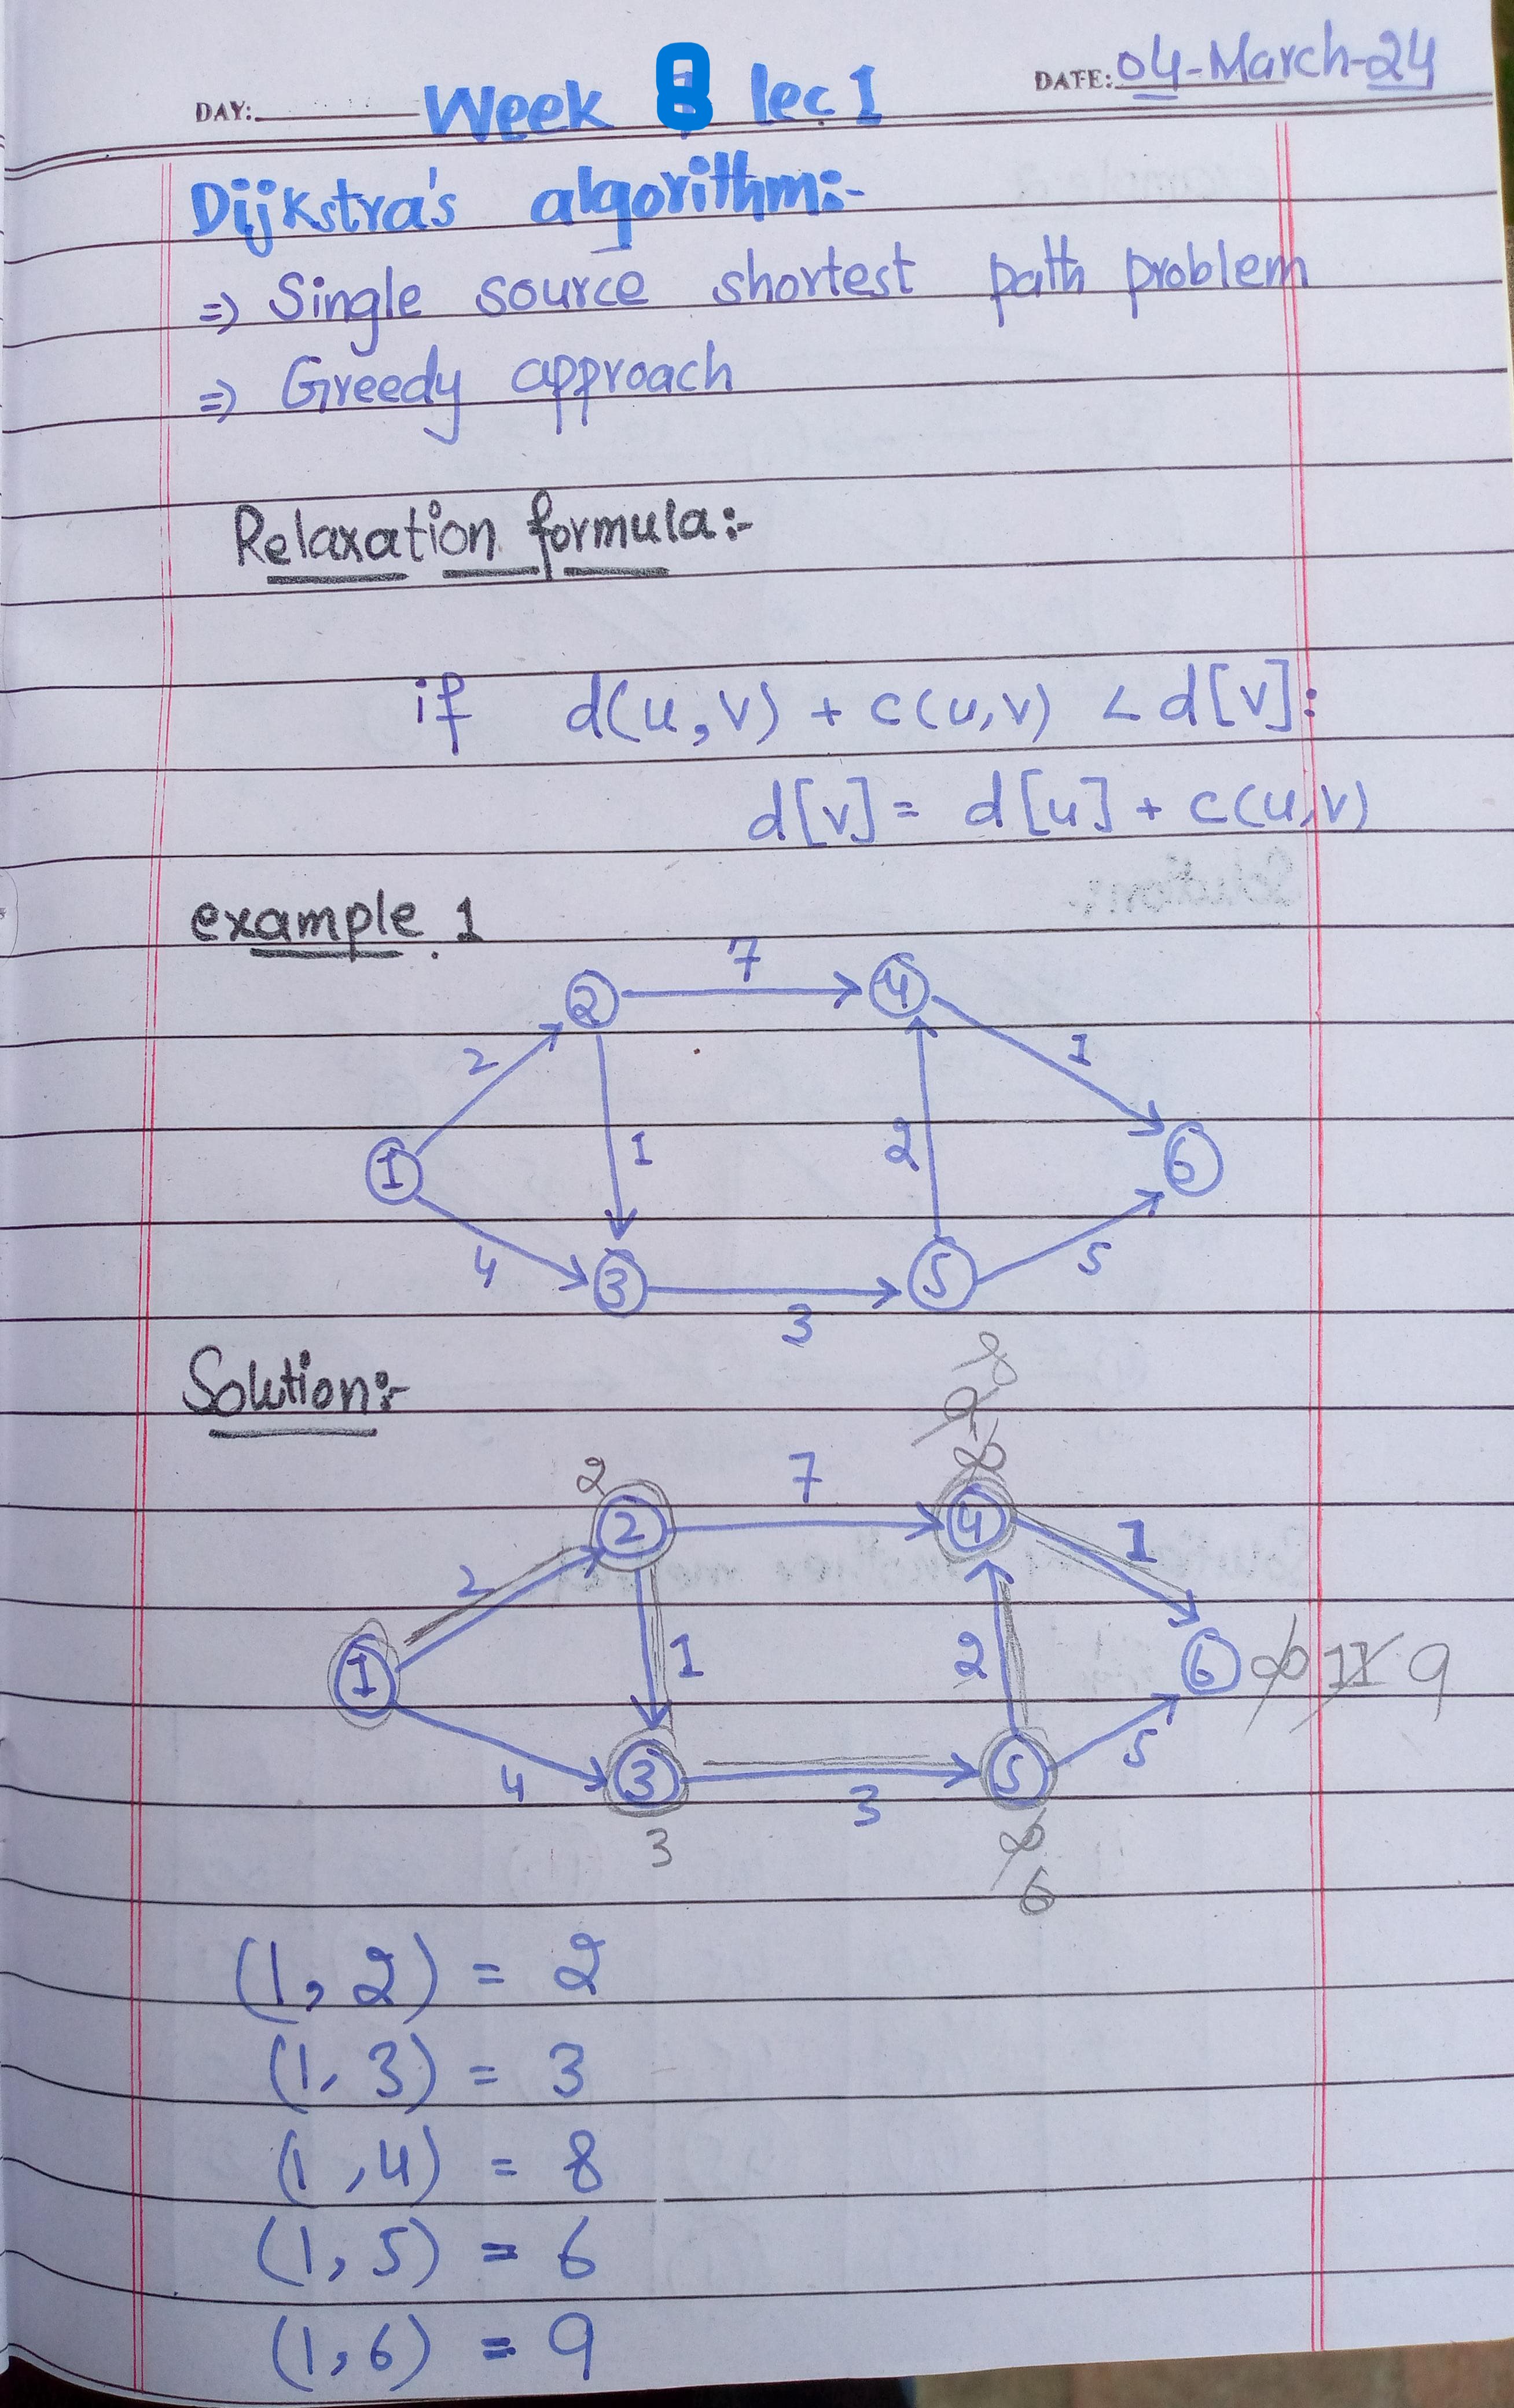 DAY: Week 8 lec 1 DATE: 04-March-24
Dijkstra's algorithm:-
=> Single source shortest path problem
=> Greedy approach
Relaxation formula:-
if d(u,v) + c(u,v) < d[v]:
d[v] = d[u] + c(u,v)
example 1
7
2 4
2 1
1 1 2 6
4 5
3 5
3
Solution:-
8
9
2 7 ∞
2 4
2 1
1 1 2 6 ∞ 11 9
4 3 3 5 5
3 ∞
6
(1, 2) = 2
(1, 3) = 3
(1, 4) = 8
(1, 5) = 6
(1, 6) = 9